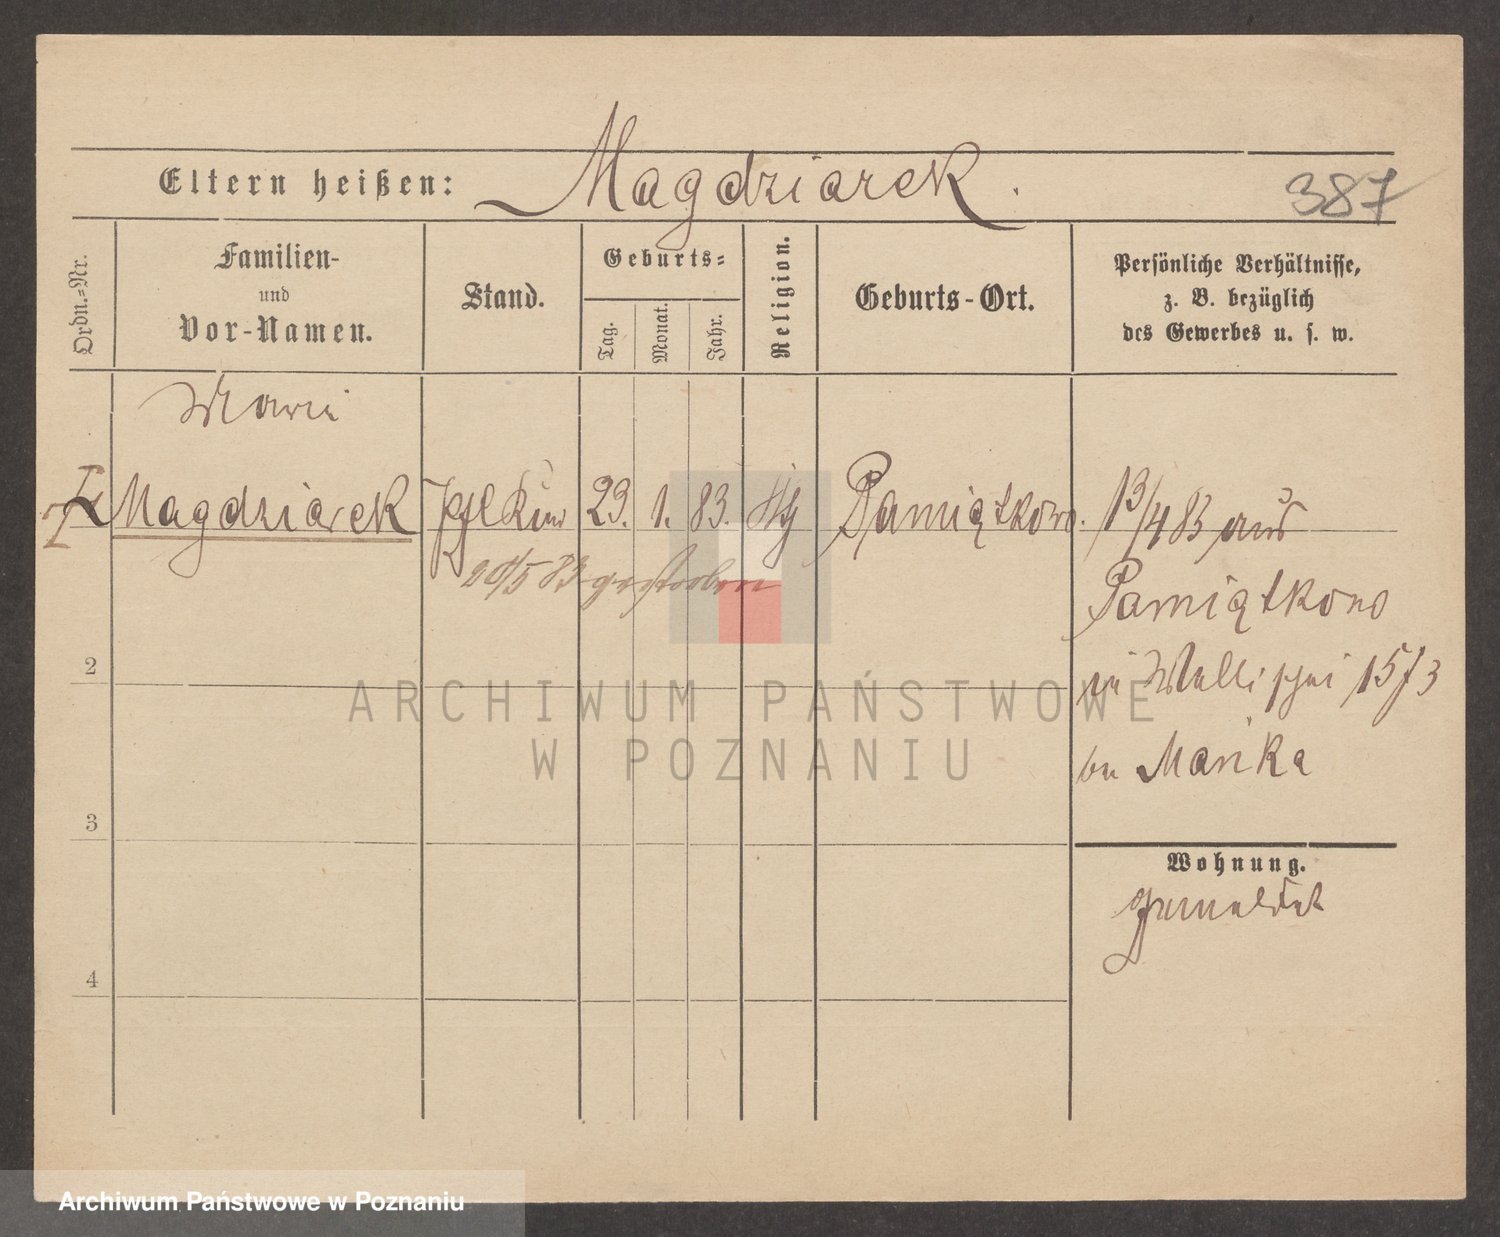 Eltern heißen: Magdziarek.
387
Ordn.=Nr.
Familien-
und
Vor-Namen.
Stand.
Geburts=
Tag.
Monat.
Jahr.
Religion.
Geburts-Ort.
Persönliche Verhältnisse,
z. B. bezüglich
des Gewerbes u. s. w.
Marie
Magdziarek
23. 1. 83.
Pamiątkowo.
13/4 83 aus
gestorben
Pamiątkowo
2
in Wallischei 1573
bei Marika
3
Wohnung.
gemeldet
4
ARCHIWUM PAŃSTWOWE
W POZNANIU
Archiwum Państwowe w Poznaniu